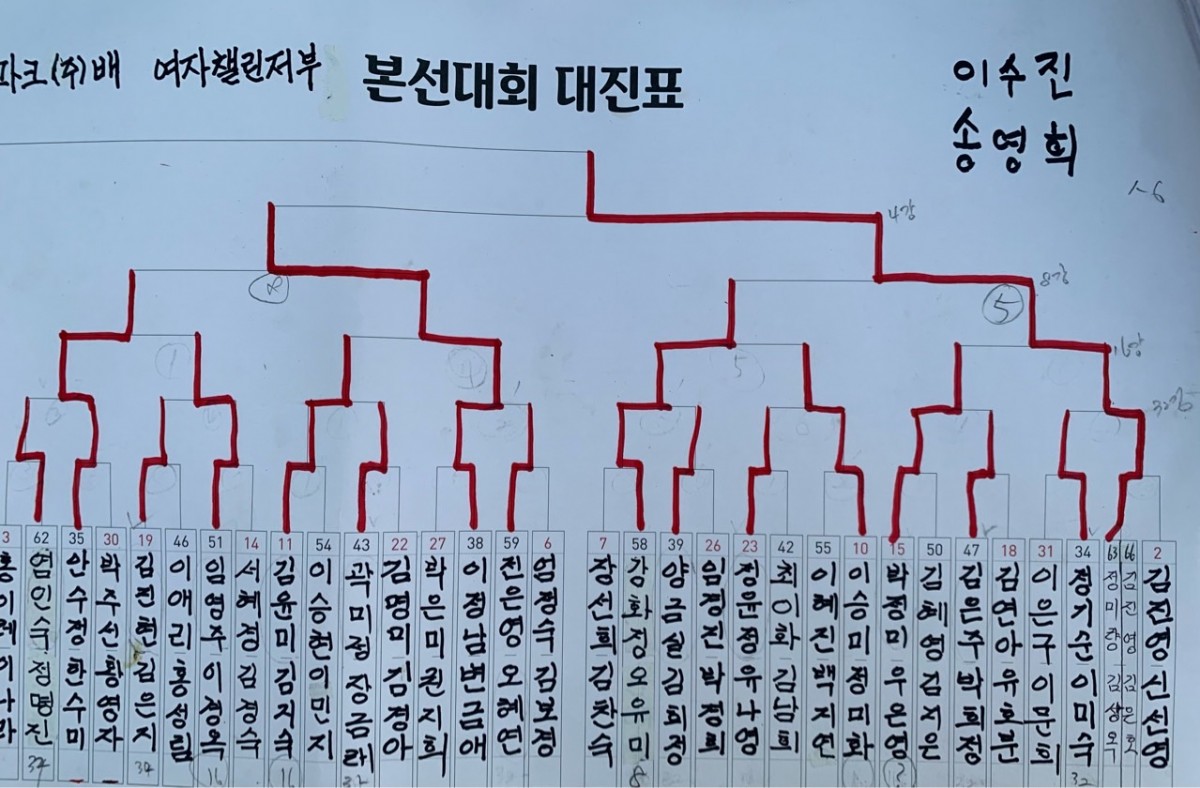 파크(주)배 여자챌린저부 본선대회 대진표
이수진
송영희
4강
8강
16강
32강
8
5
1
4
5
3 62 35 30 19 46 51 14 11 54 43 22 27 38 59 6 7 58 39 26 23 42 55 10 15 50 47 18 31 34 63 66 2
염인숙 정명진
안수정 한수미
박주선 황영자
김진현 김은지
이애리 홍성림
임영주 이경옥
서혜경 김경숙
김윤미 김지숙
이승현 이민지
곽미정 장금래
김명미 김경아
박은미 권지희
이정남 변금애
진은영 오혜연
엄정숙 김보경
장선희 김찬숙
강화정 오유미
양금실 김희정
임정진 박경희
정윤정 유나영
최이화 김남희
이혜진 백지연
이승미 정미화
박정미 우은영
김혜영 김저은
김은주 박희정
김연아 유호분
이은구 이문희
정기순 이미숙
정미량 김생옥
김진영 김은호
김진영 신선영
16 16 8 ? 32